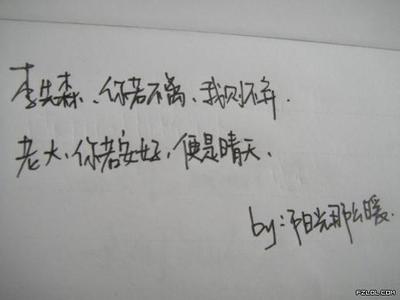 李先森、你若不离、我则不弃.
老大、你若安好，便是晴天.
by:阳光那么暖.
PZLOL.COM